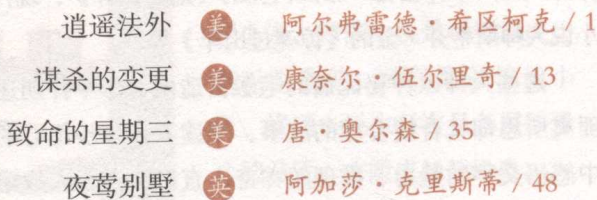 逍遥法外 美 阿尔弗雷德·希区柯克 / 1
谋杀的变更 美 康奈尔·伍尔里奇 / 13
致命的星期三 美 唐·奥尔森 / 35
夜莺别墅 英 阿加莎·克里斯蒂 / 48